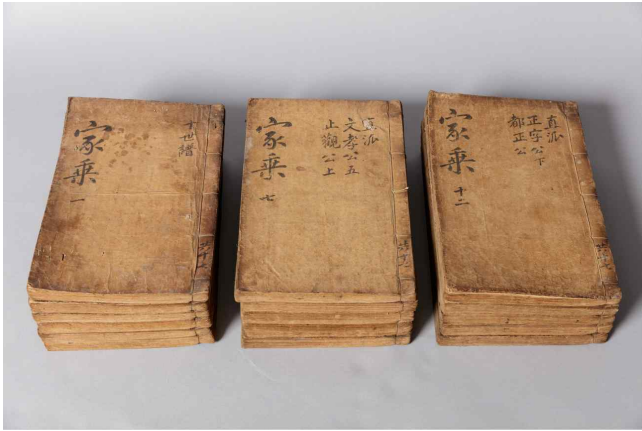 家乗
一
十世譜
家乗
七
直派
文孝公五
止觀公上
家乗
十二
直派
正字公下
都正公